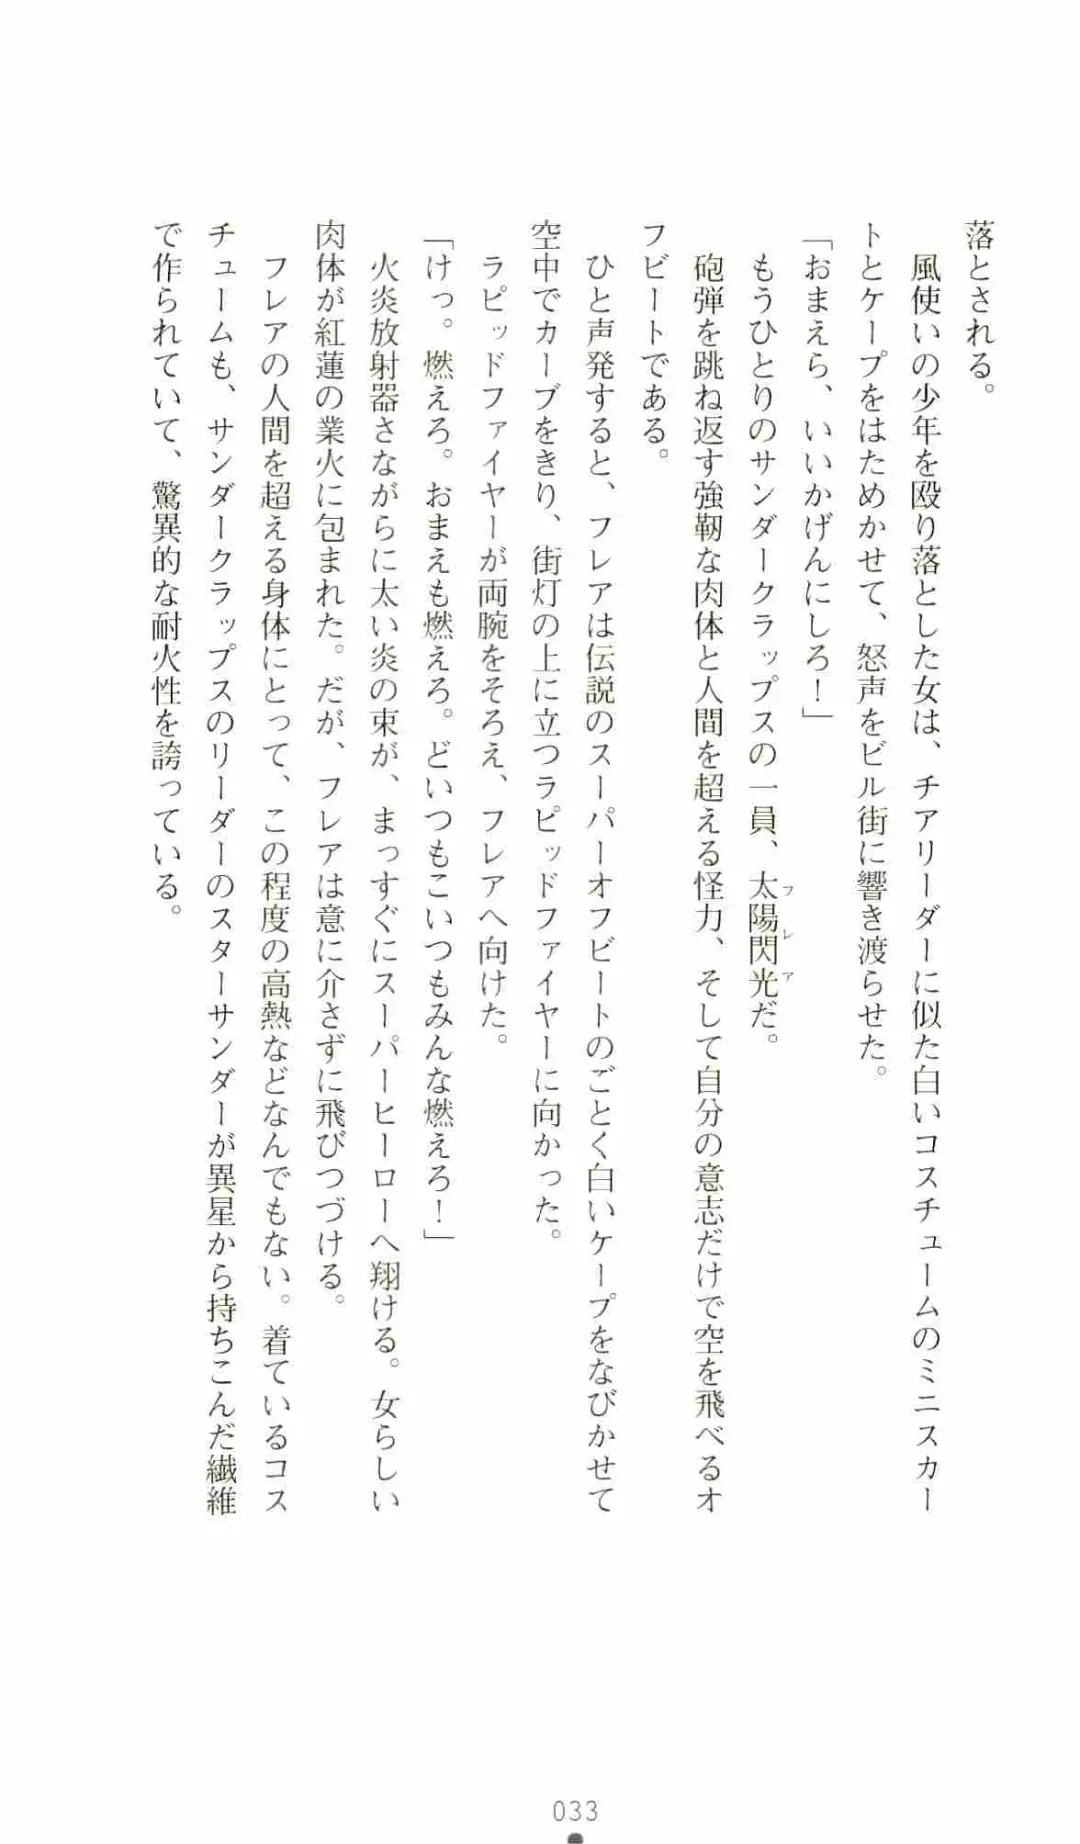 落とされる。
　風使いの少年を殴り落とした女は、チアリーダーに似た白いコスチュームのミニスカー
トとケープをはためかせて、怒声をビル街に響き渡らせた。
「おまえら、いいかげんにしろ！」
　もうひとりのサンダークラップスの一員、太陽閃光だ。
フレア
　砲弾を跳ね返す強靭な肉体と人間を超える怪力、そして自分の意志だけで空を飛べるオ
フビートである。
　ひと声発すると、フレアは伝説のスーパーオフビートのごとく白いケープをなびかせて
空中でカーブをきり、街灯の上に立つラピッドファイヤーに向かった。
　ラピッドファイヤーが両腕をそろえ、フレアへ向けた。
「けっ。燃えろ。おまえも燃えろ。どいつもこいつもみんな燃えろ！」
　火炎放射器さながらに太い炎の束が、まっすぐにスーパーヒーローへ翔ける。女らしい
肉体が紅蓮の業火に包まれた。だが、フレアは意に介さずに飛びつづける。
　フレアの人間を超える身体にとって、この程度の高熱などなんでもない。着ているコス
チュームも、サンダークラップスのリーダーのスターサンダーが異星から持ちこんだ繊維
で作られていて、驚異的な耐火性を誇っている。
033